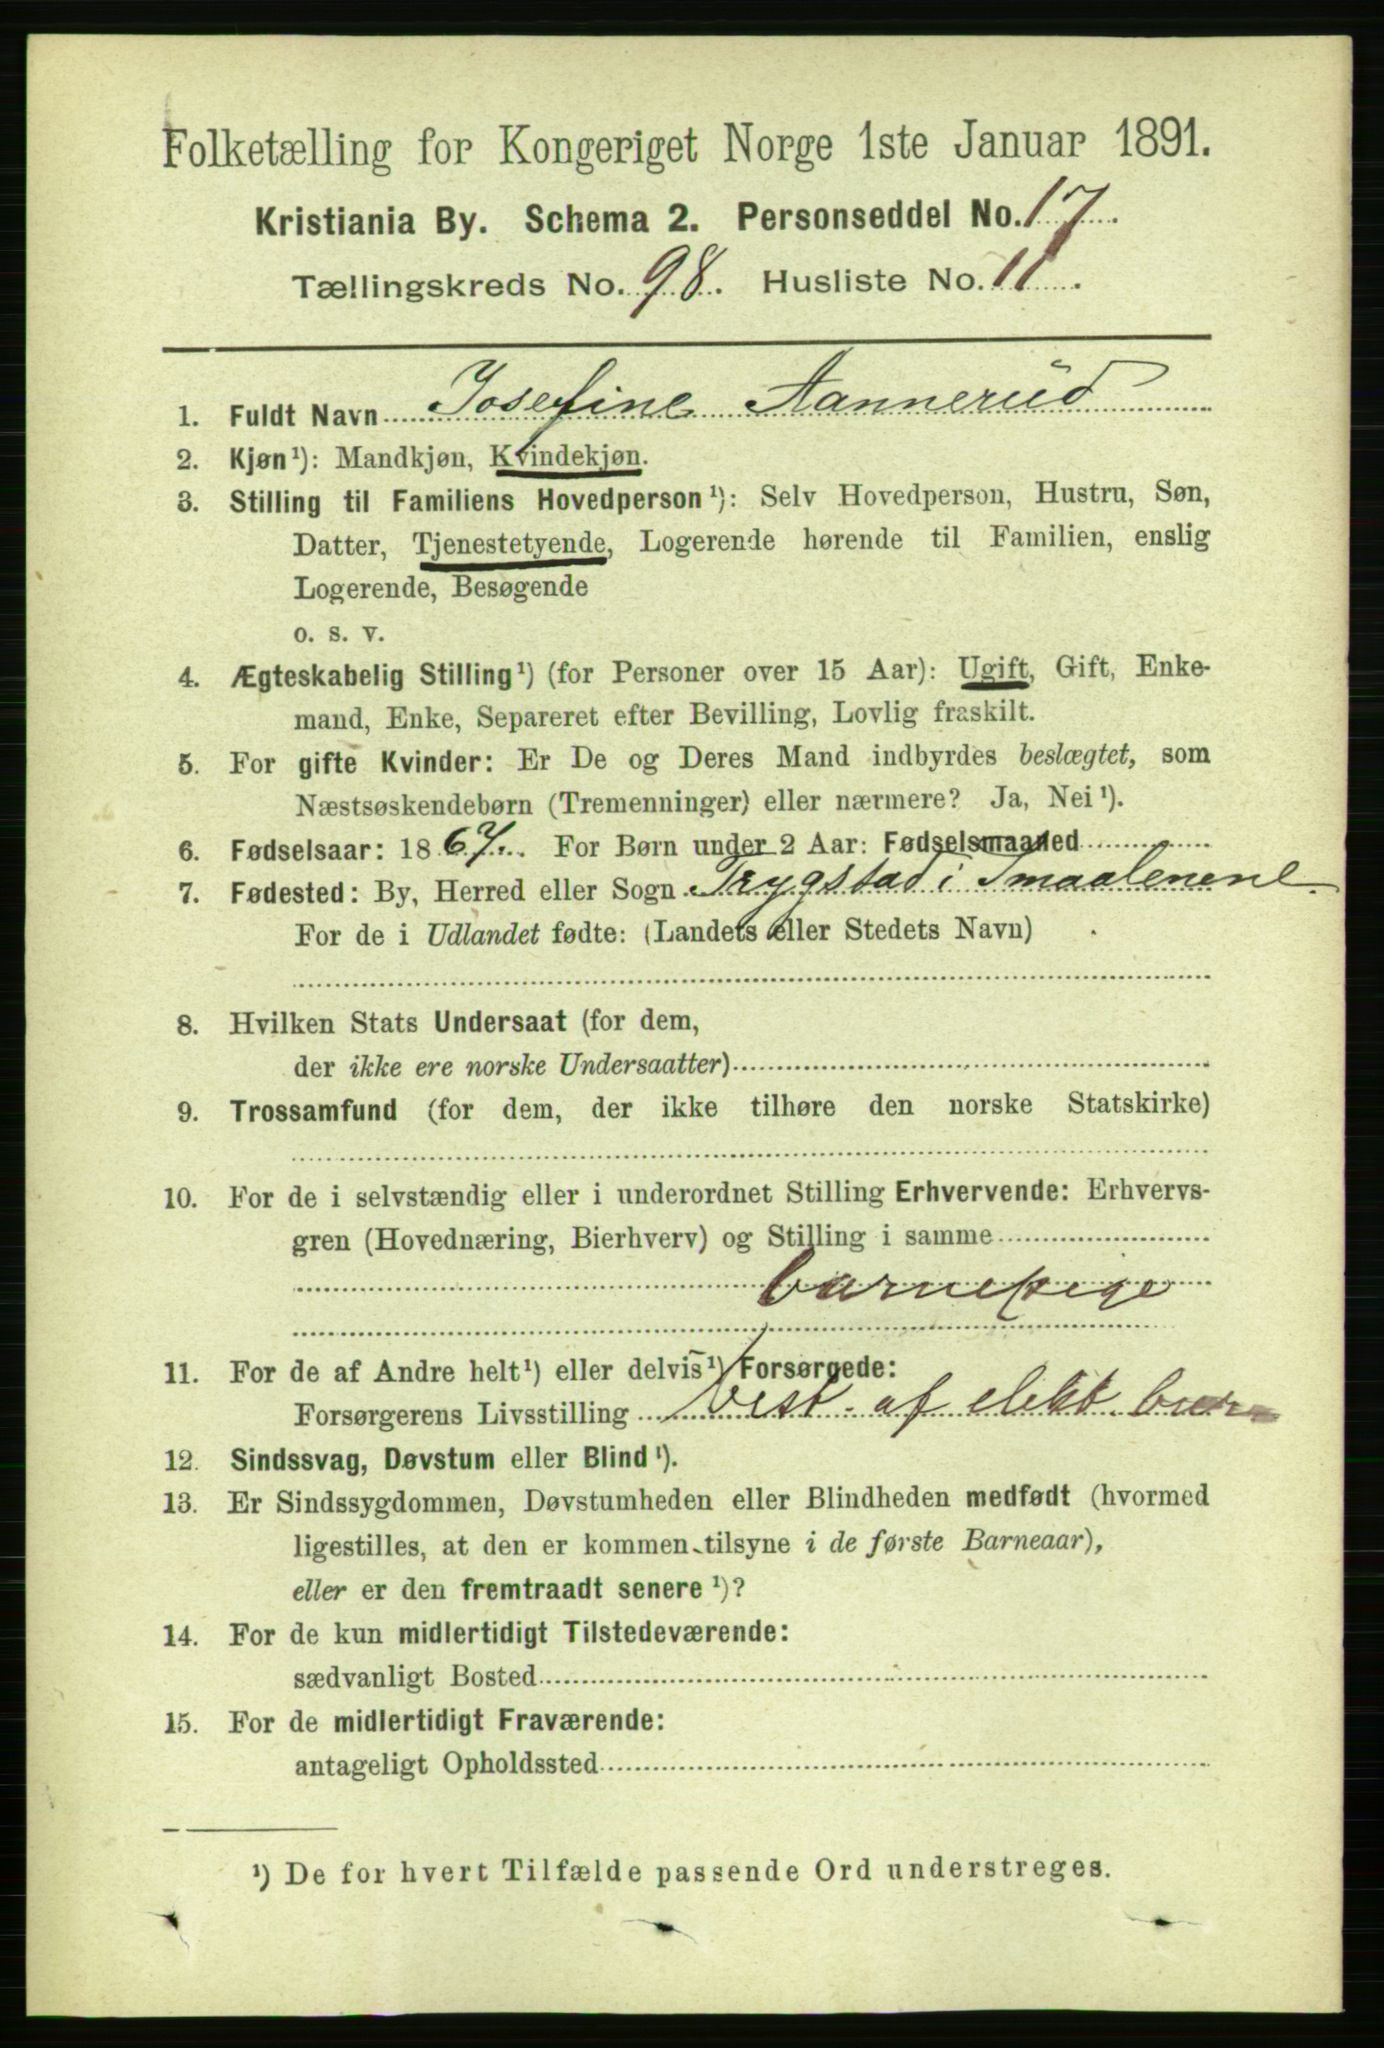 Folketælling for Kongeriget Norge 1ste Januar 1891.
Kristiania By. Schema 2. Personseddel No. 17.
Tællingskreds No. 98. Husliste No. 11.
1. Fuldt Navn Josefine Aannerud
2. Kjøn¹): Mandkjøn, Kvindekjøn.
3. Stilling til Familiens Hovedperson¹): Selv Hovedperson, Hustru, Søn,
Datter, Tjenestetyende, Logerende hørende til Familien, enslig
Logerende, Besøgende
o. s. v.
4. Ægteskabelig Stilling¹) (for Personer over 15 Aar): Ugift, Gift, Enke-
mand, Enke, Separeret efter Bevilling, Lovlig fraskilt.
5. For gifte Kvinder: Er De og Deres Mand indbyrdes beslægtet, som
Næstsøskendebørn (Tremenninger) eller nærmere? Ja, Nei¹).
6. Fødselsaar: 1867. For Børn under 2 Aar: Fødselsmaaned
7. Fødested: By, Herred eller Sogn Trygstad i Smaalenene
For de i Udlandet fødte: (Landets eller Stedets Navn)
8. Hvilken Stats Undersaat (for dem,
der ikke ere norske Undersaatter)
9. Trossamfund (for dem, der ikke tilhøre den norske Statskirke)
10. For de i selvstændig eller i underordnet Stilling Erhvervende: Erhvervs-
gren (Hovednæring, Bierhverv) og Stilling i samme
barnepige
11. For de af Andre helt¹) eller delvis¹) Forsørgede:
Forsørgerens Livsstilling Best. af elekt.
12. Sindssvag, Døvstum eller Blind¹).
13. Er Sindssygdommen, Døvstumheden eller Blindheden medfødt (hvormed
ligestilles, at den er kommen tilsyne i de første Barneaar),
eller er den fremtraadt senere¹)?
14. For de kun midlertidigt Tilstedeværende:
sædvanligt Bosted
15. For de midlertidigt Fraværende:
antageligt Opholdssted
¹) De for hvert Tilfælde passende Ord understreges.